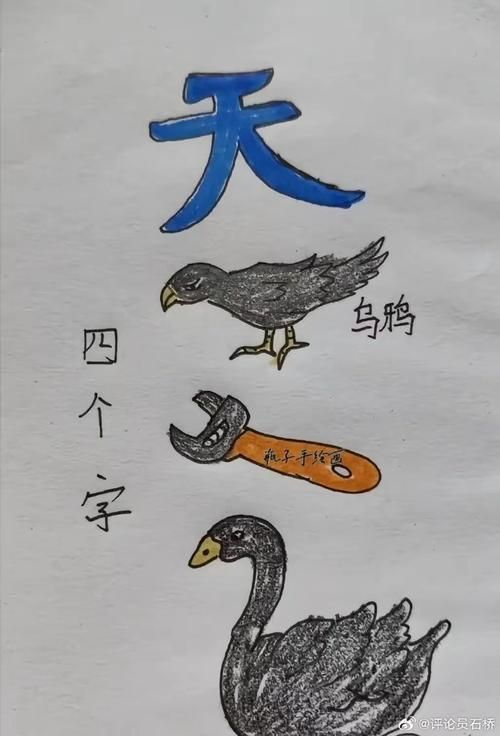 天
乌鸦
四个字
瓶子手绘画
@评论员石桥